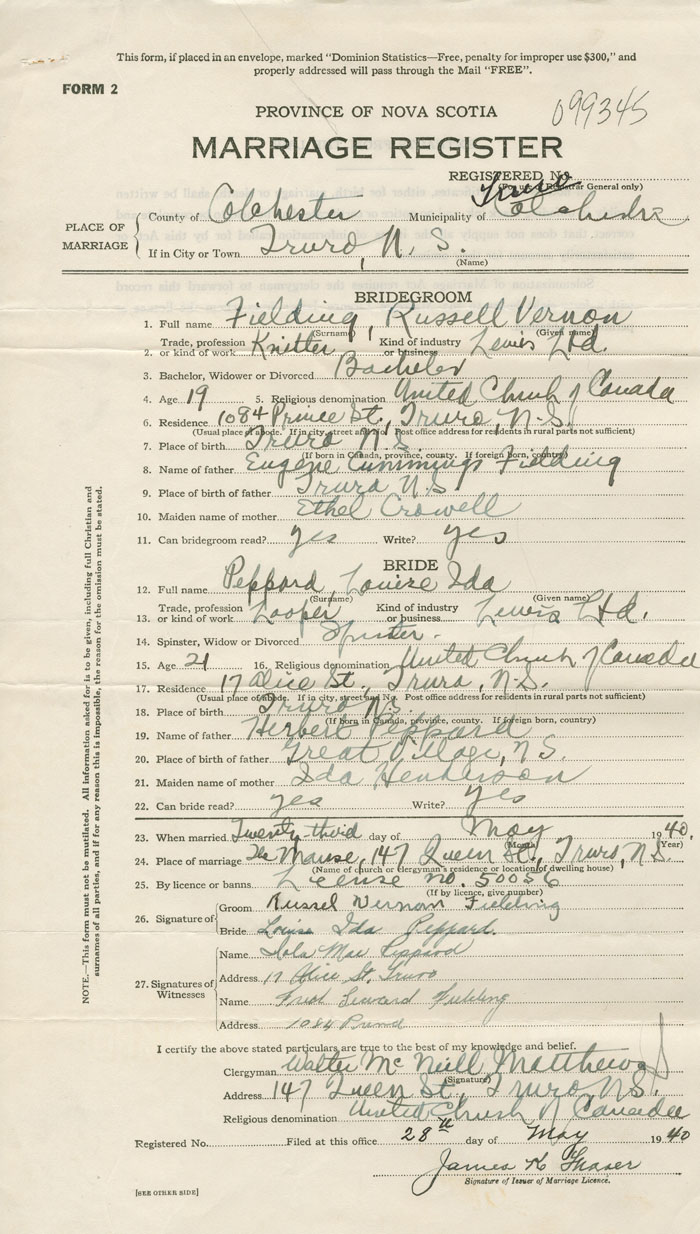 This form, if placed in an envelope, marked "Dominion Statistics—Free, penalty for improper use $300," and
properly addressed will pass through the Mail "FREE".
FORM 2
099345
PROVINCE OF NOVA SCOTIA
MARRIAGE REGISTER
REGISTERED No.
(For use of Registrar General only)
Truro
PLACE OF MARRIAGE
County of Colchester Municipality of Colchester
If in City or Town Truro, N. S.
(Name)
BRIDEGROOM
1. Full name Fielding, Russell Vernon
(Surname) (Given name)
2. Trade, profession or kind of work Knitter Kind of industry or business Lewis Ltd.
3. Bachelor, Widower or Divorced Bachelor
4. Age 19 5. Religious denomination United Church of Canada
6. Residence 1084 Prince St., Truro, N.S.
(Usual place of abode. If in city, street and No. Post office address for residents in rural parts not sufficient)
7. Place of birth Truro N.S
(If born in Canada, province, county. If foreign born, country)
8. Name of father Eugene Cummings Fielding
9. Place of birth of father Truro N.S
10. Maiden name of mother Ethel Crowell
11. Can bridegroom read? yes Write? yes
BRIDE
12. Full name Peppard, Louise Ida
(Surname) (Given name)
13. Trade, profession or kind of work Looper Kind of industry or business Lewis Ltd.
14. Spinster, Widow or Divorced Spinster.
15. Age 21 16. Religious denomination United Church of Canada
17. Residence 17 Alice St., Truro, N.S.
(Usual place of abode. If in city, street and No. Post office address for residents in rural parts not sufficient)
18. Place of birth Truro N.S.
(If born in Canada, province, county. If foreign born, country)
19. Name of father Herbert Peppard
20. Place of birth of father Great Village, N.S.
21. Maiden name of mother Ida Henderson
22. Can bride read? yes Write? yes
23. When married Twenty-third day of May 1940.
(Month) (Year)
24. Place of marriage The Manse, 147 Queen St., Truro, N.S.
(Name of church or clergyman's residence or location of dwelling house)
25. By licence or banns License no. 50056
(If by licence, give number)
26. Signature of
Groom Russel Vernon Fielding
Bride Louise Ida Peppard.
27. Signatures of Witnesses
Name Lola Mae Peppard
Address 17 Alice St. Truro
Name Fred Seward Fielding
Address 1084
I certify the above stated particulars are true to the best of my knowledge and belief.
Clergyman Walter McNeill Matthews
(Signature)
Address 147 Queen St., Truro N.S.
Religious denomination United Church of Canada
Registered No. Filed at this office 28th day of May 1940
James K Fraser
Signature of Issuer of Marriage Licence.
[SEE OTHER SIDE]
NOTE.—This form must not be mutilated. All information asked for is to be given, including full Christian and
surnames of all parties, and if for any reason this is impossible, the reason for the omission must be stated.